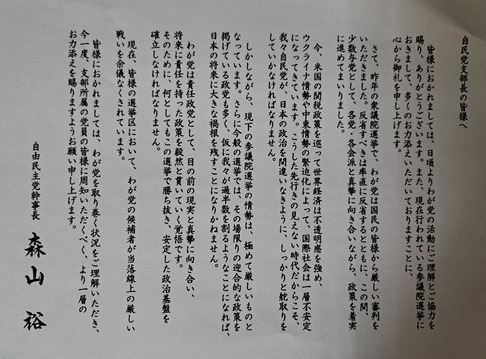 自民党支部長の皆様へ
皆様におかれましては、日頃よりわが党の活動にご理解とご協力を
賜り、ありがとうございます。また、現在行われている参議院選挙に
おきまして、多くのお力添えをいただいておりますことに、
心から御礼を申し上げます。
さて、昨年の衆議院選挙で、わが党は国民の皆様から厳しい審判を
いただきました。反省すべきは率直に反省するとともに、この間、
少数与党として、各党、各会派と真摯に向き合いながら、政策を着実
に進めてまいりました。
今、米国の関税政策を巡って世界経済は不透明感を強め、
ウクライナ情勢や中東情勢の緊迫化によって、国際社会は一層不安定
になってきています。こうした先行きの見えない時代だからこそ、
我々自民党が、日本の政治を間違いなきように、しっかりと舵取りを
していかなければなりません。
しかしながら、現下の参議院選挙の情勢は、極めて厳しいものと
なっています。さらに今般の選挙では、その場限りの迎合的な政策を
掲げている政党も多く、仮に我々が過半数を割るようなことになれば、
日本の将来に大きな禍根を残すことになりかねません。
わが党は責任政党として、目の前の現実と真摯に向き合い、
将来に責任を持った政策を毅然と貫いていく覚悟です。
そのために、何としてもこの選挙で勝ち抜き、安定した政治基盤を
確立しなければなりません。
現在、皆様の選挙区において、わが党の候補者が当落線上の厳しい
戦いを余儀なくされています。
皆様におかれましては、わが党を取り巻く状況をご理解いただき、
今一度、支部所属の党員の皆様に周知いただくべく、より一層の
お力添えを賜りますようお願い申し上げます。
自由民主党幹事長 森山 裕